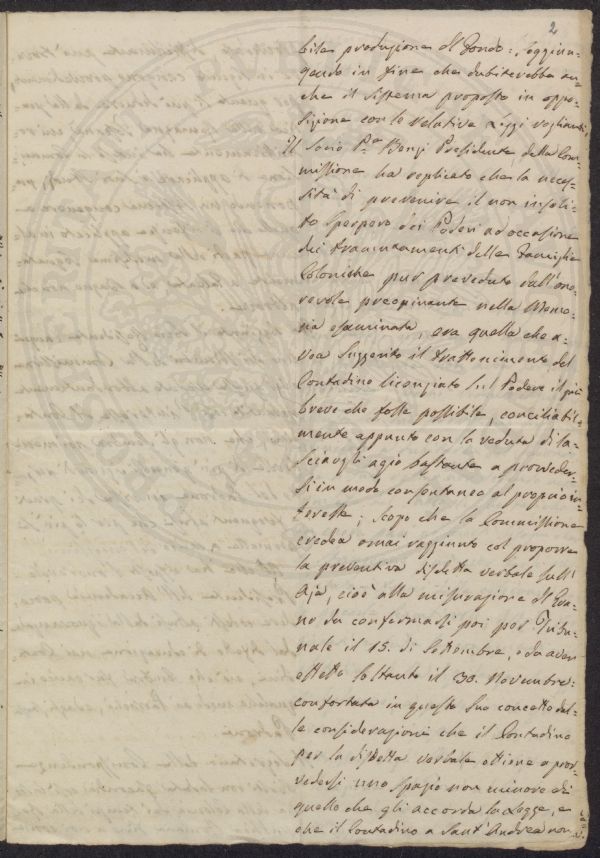 2
bile produzione del Fondo: soggiun-
gendo in fine che dubiterebbe an-
che il sistema proposto in oppo-
sizione con le relative Leggi veglianti.
Il Socio Pre Benzi Presidente della Com-
missione ha replicato che la neces-
sità di prevenire il non insoli-
to sperpero dei Poderi ad occasione
dei tramutamenti delle Famiglie
Coloniche pur preveduto dall'ono-
revole preopinante nella Memo-
ria esaminata, era quella che a-
vea suggerito il trattenimento del
Contadino licenziato sul Podere il più
breve che fosse possibile, conciliabil-
mente appunto con la veduta di la-
sciargli agio bastante a provveder-
si in modo consentaneo al proprio in-
teresse; scopo che la Commissione
credea omai raggiunto col proporre
la preventiva disdetta verbale sull'
Aja, cioè alla misurazione del Gra-
no da confermarsi poi per Tribu-
nale il 15. di Settembre, e da aver
effetto soltanto il 30. Novembre:
confortata in questo suo concetto dal-
le considerazioni che il Contadino
per la disdetta verbale ottiene a prov-
vedersi uno spazio non minore di
quello che gli accorda la Legge, e
che il Contadino a Sant'Andrea non